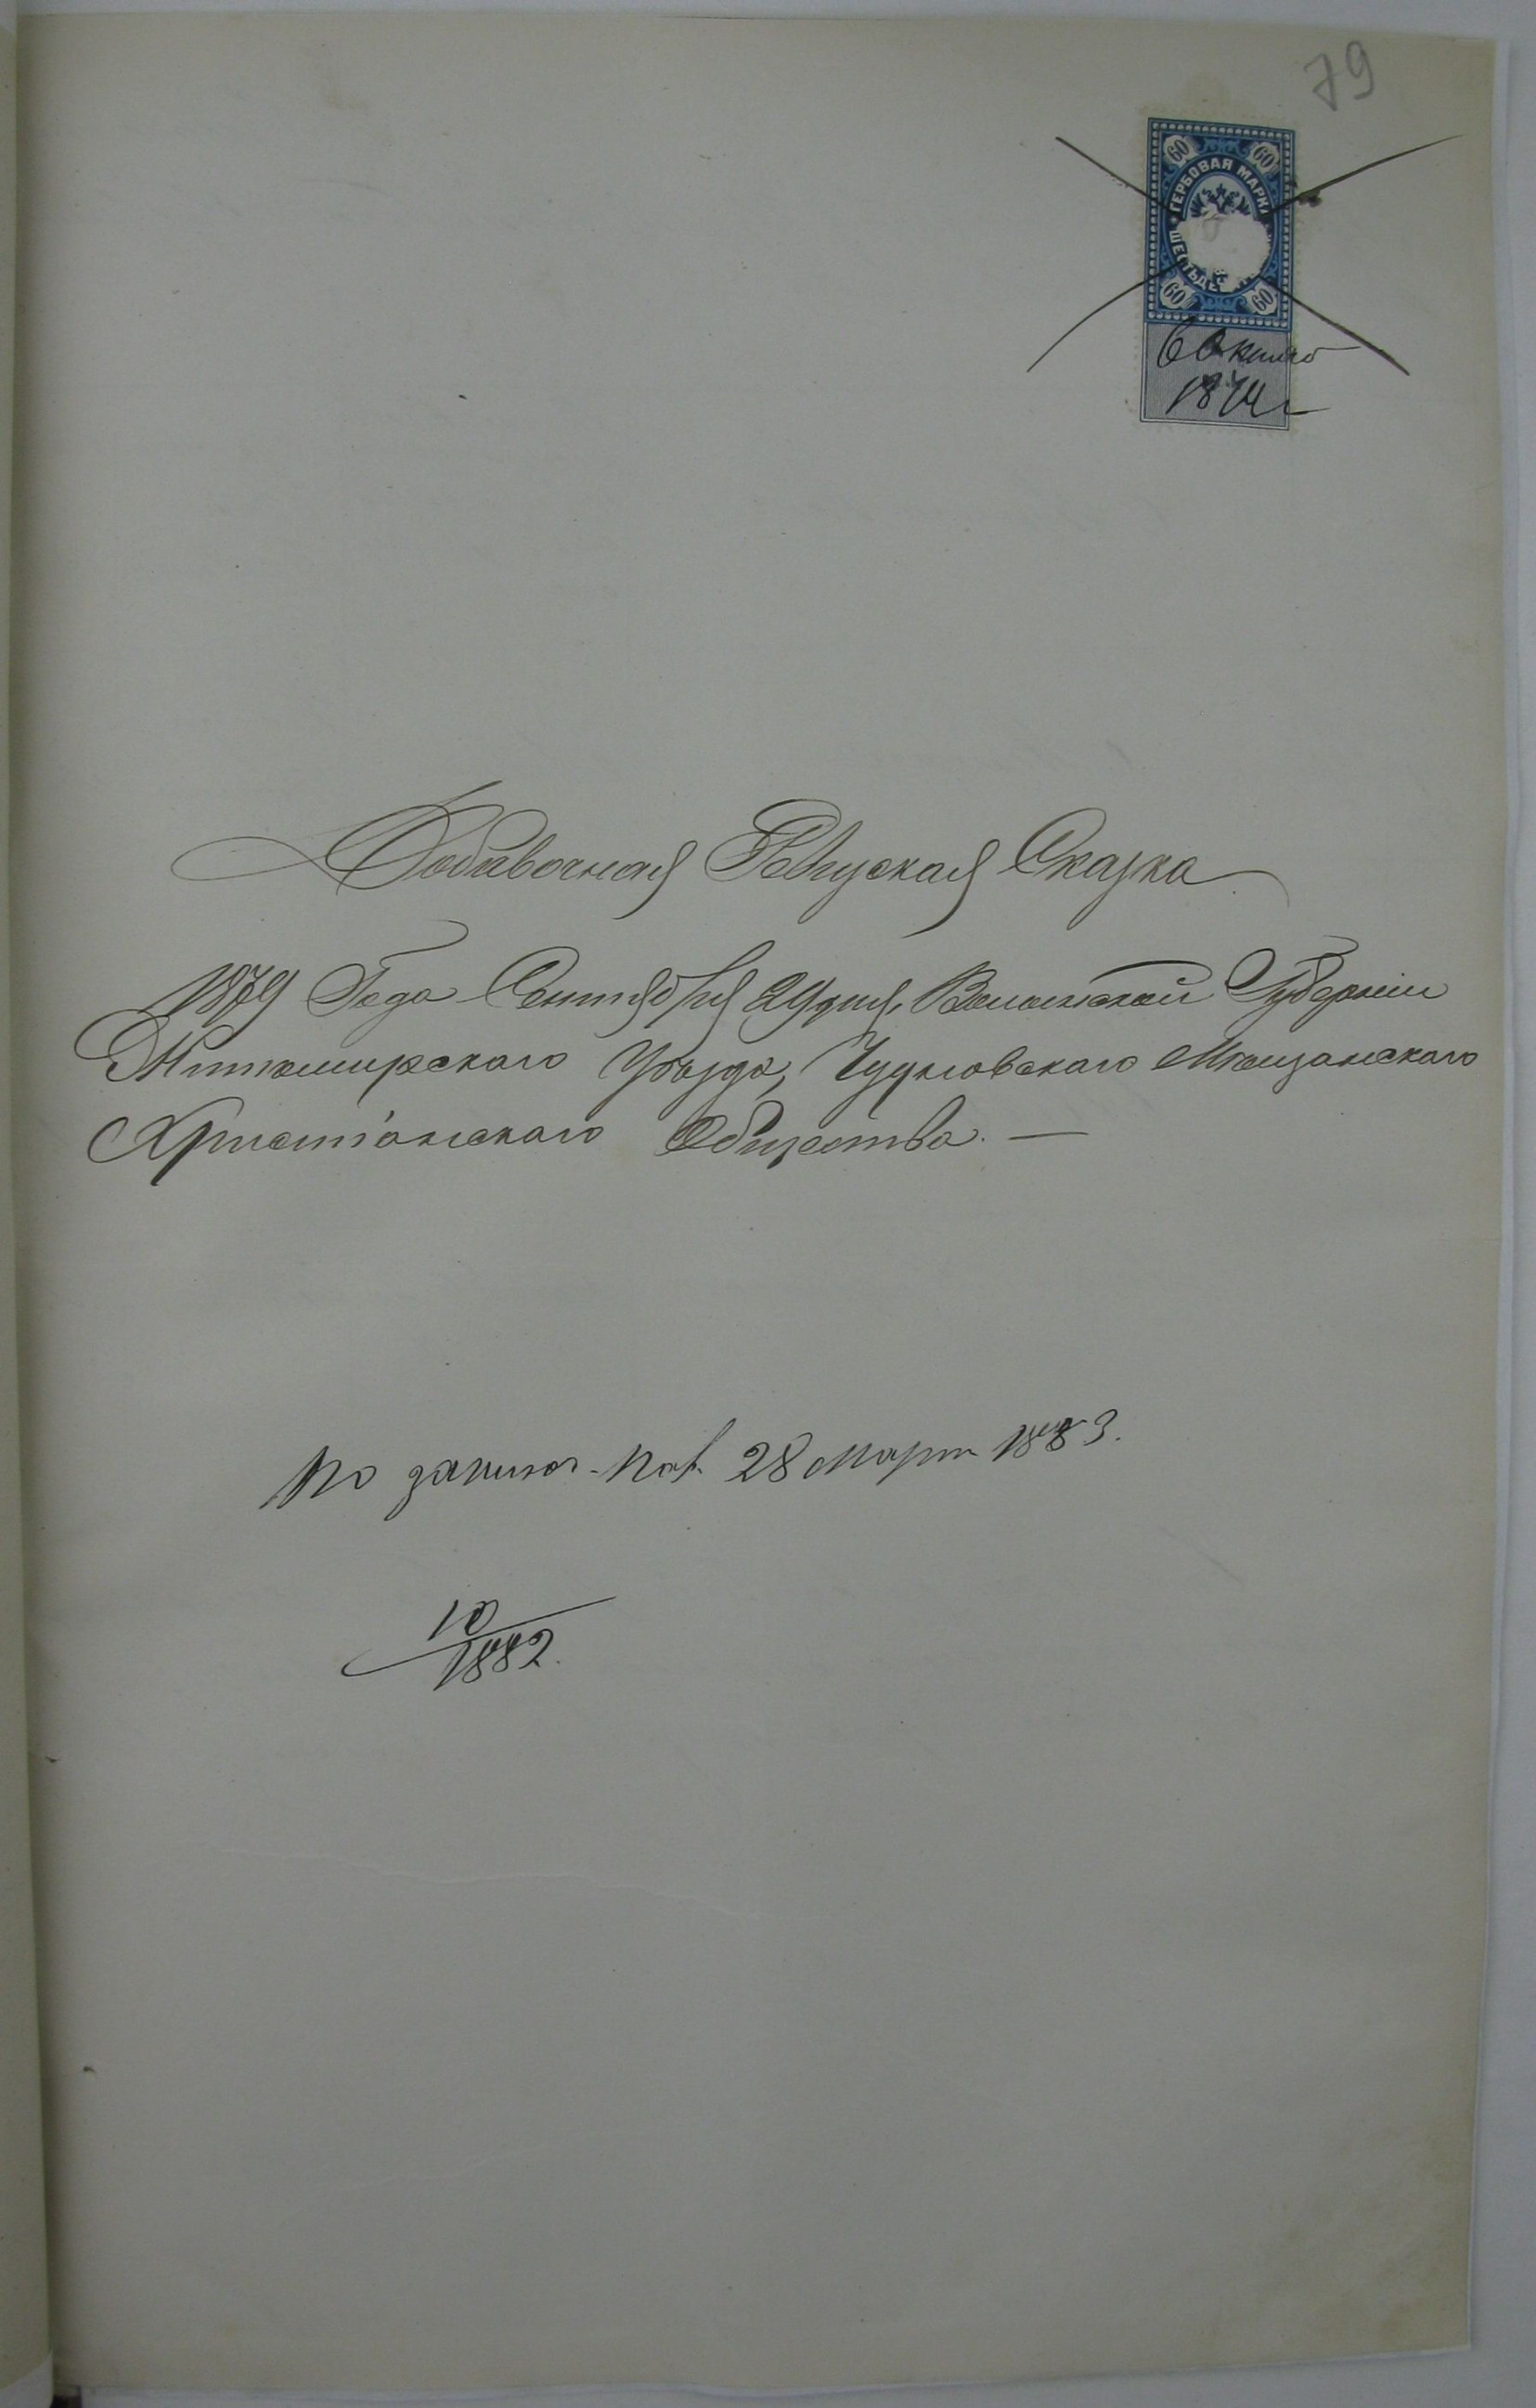 79
60 60
ГЕРБОВАЯ МАРКА
ШЕСТЬДЕ
60 60
6 Октяб
1879 г
Добавочная Ревизская Сказка
1879 Года Сентября 29 дня, Волынской Губернии
Житомирского Уѣзда, Чудновского Мѣщанского
Христіанского Общества. —
По 28 Март 1883.
10
1882.